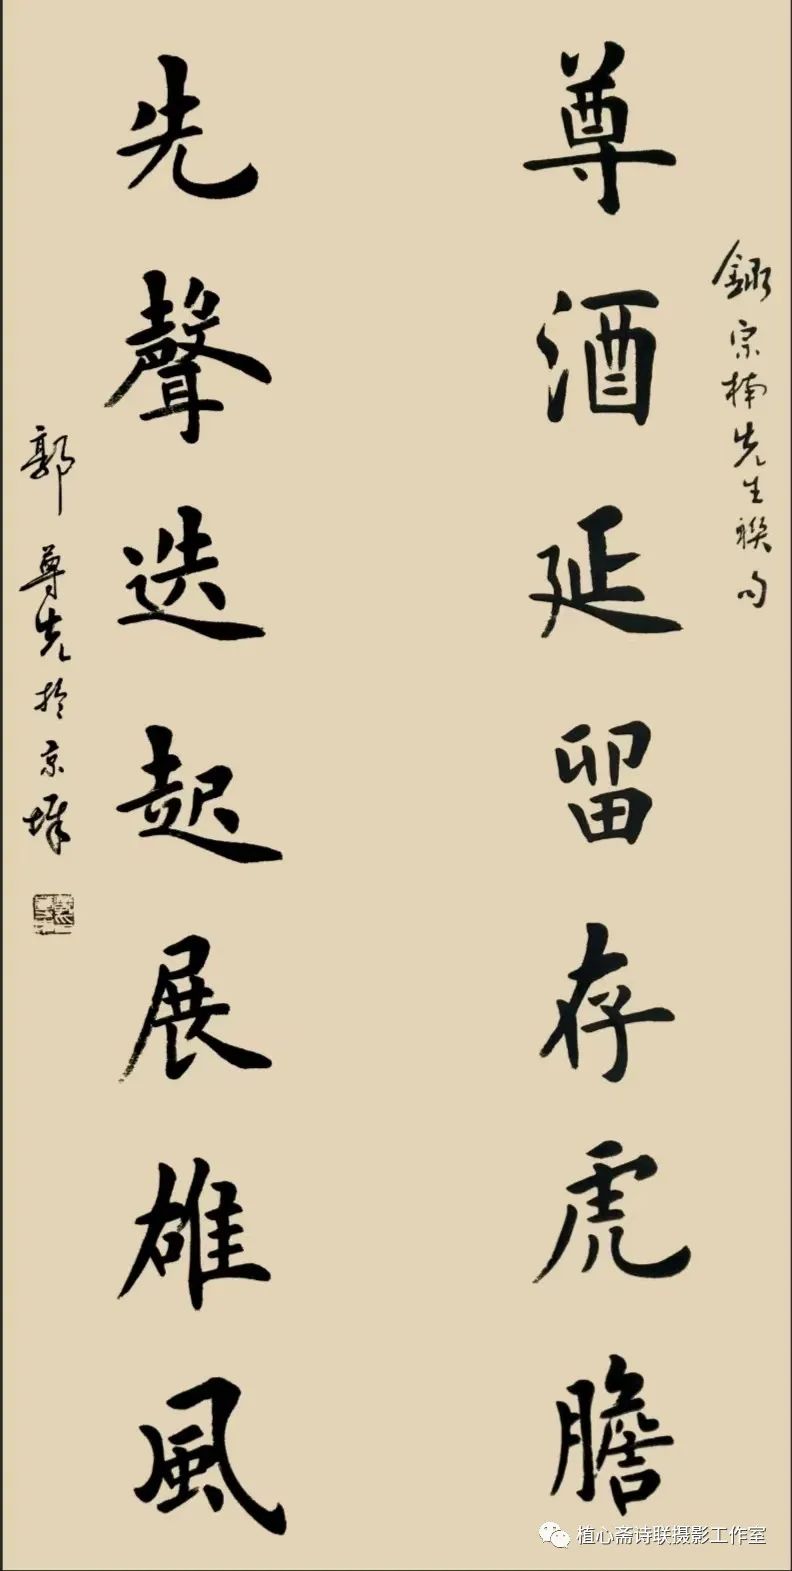 錄宗楠先生聯句
尊酒延留存虎膽
先聲迭起展雄風
郭尊先於京
植心斋诗联摄影工作室